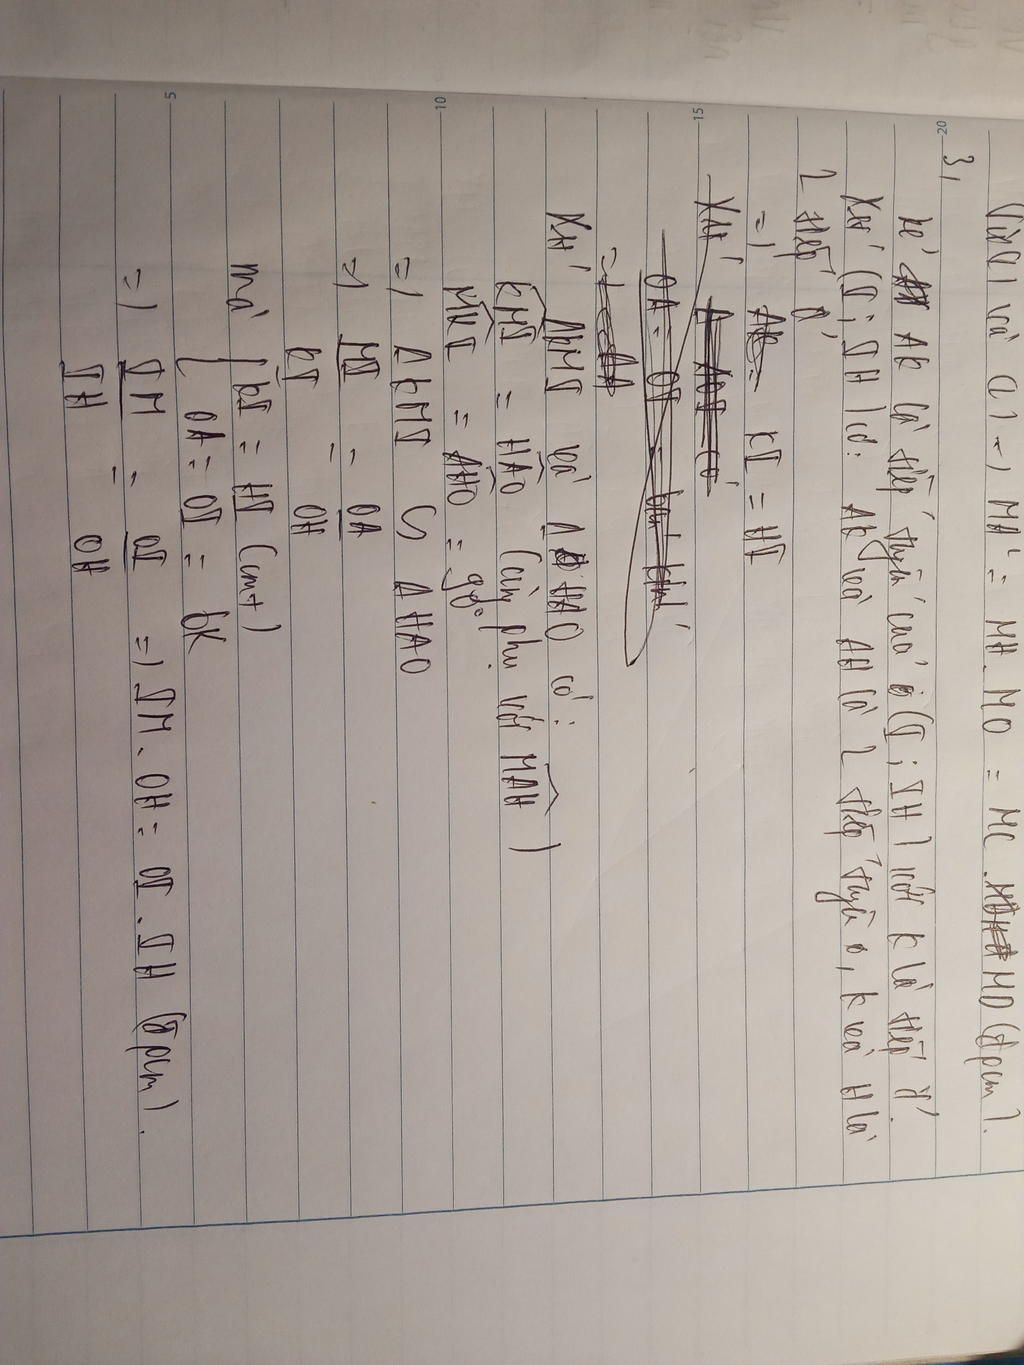 Từ (1) và (2) => MA² = MH. MO = MC. MD (đpcm).
3,
kẻ AK là tiếp tuyến của (I; IH) với K là tiếp đ'.
Xét (I; IH) có: AK và AH là 2 tiếp tuyến, K và H là
2 tiếp đ'
=> KI = HI
Xét
OA = OI = bán kính
Xét ΔKMI và ΔHAO có:
KMI = HAO (cùng phụ với MAH)
MKI = AHO = 90°
=> ΔKMI ∽ ΔHAO
=> MI/KI = OA/OH
mà { KI = HI (cmt)
OA = OI = bk
=> IM/IH = OI/OH => IM. OH = OI. IH (đpcm).